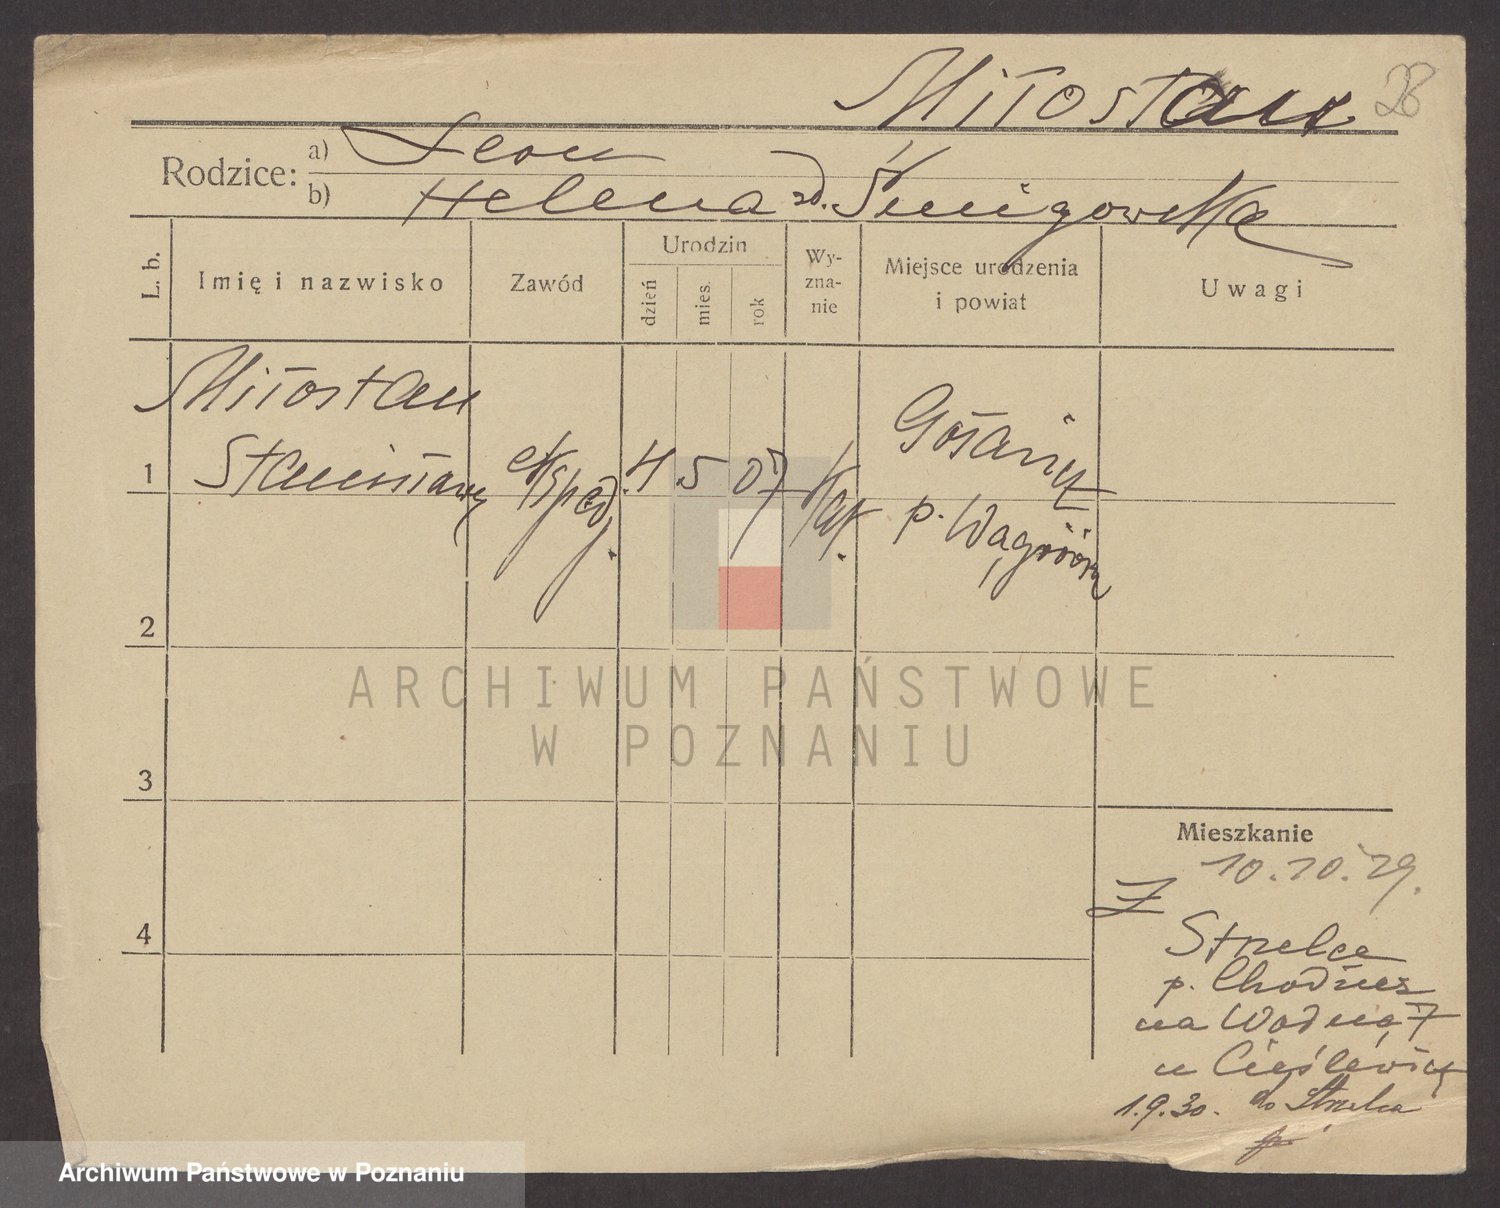 Miłostan 28
Rodzice: a) Leon
b) Helena zd. Śmigowska
L. b. Imię i nazwisko Zawód Urodzin dzień mies. rok Wy-zna-nie Miejsce urodzenia i powiat Uwagi
Miłostan
1 Stanisław eksped. 4 5 07 kat. Gołańcz
p. Wągrów
2
3
4
Mieszkanie
10.10.29.
Z
Strzelce
p. Chodzież
na Wodną 7
u Cieślewicz
1.9.30. do Strzelca
ARCHIWUM PAŃSTWOWE
W POZNANIU
Archiwum Państwowe w Poznaniu